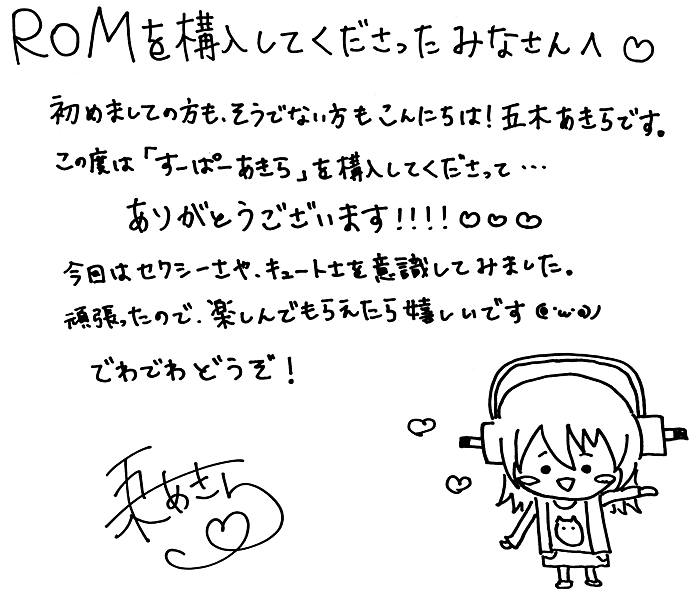 ROMを構入してくださったみなさんへ♡
初めましての方も、そうでない方もこんにちは!五木あきらです。
この度は「すーぱーあきら」を構入してくださって…
ありがとうございます!!!!♡♡♡
今回はセクシーさや、キュートさを意識してみました。
頑張ったので、楽しんでもらえたら嬉しいです(@・ω・@)ノ
でわでわどうぞ!
五木あきら♡